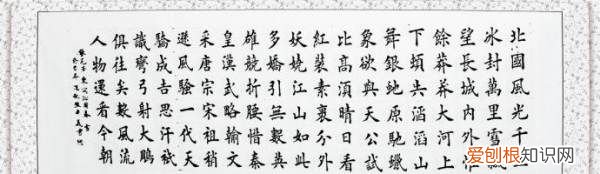 北國風光千
冰封萬里雪飄
望長城內外惟
餘莽莽大河上
下頓失滔滔山
舞銀蛇原馳蠟
象欲與天公試
比高須晴日看
紅裝素裹分外
妖嬈江山如此
多嬌引無數英
雄競折腰惜秦
皇漢武略輸文
采唐宗宋祖稍
遜風騷一代天
驕成吉思汗祇
識彎弓射大鵰
俱往矣數風流
人物還看今朝
爱刨根知识网